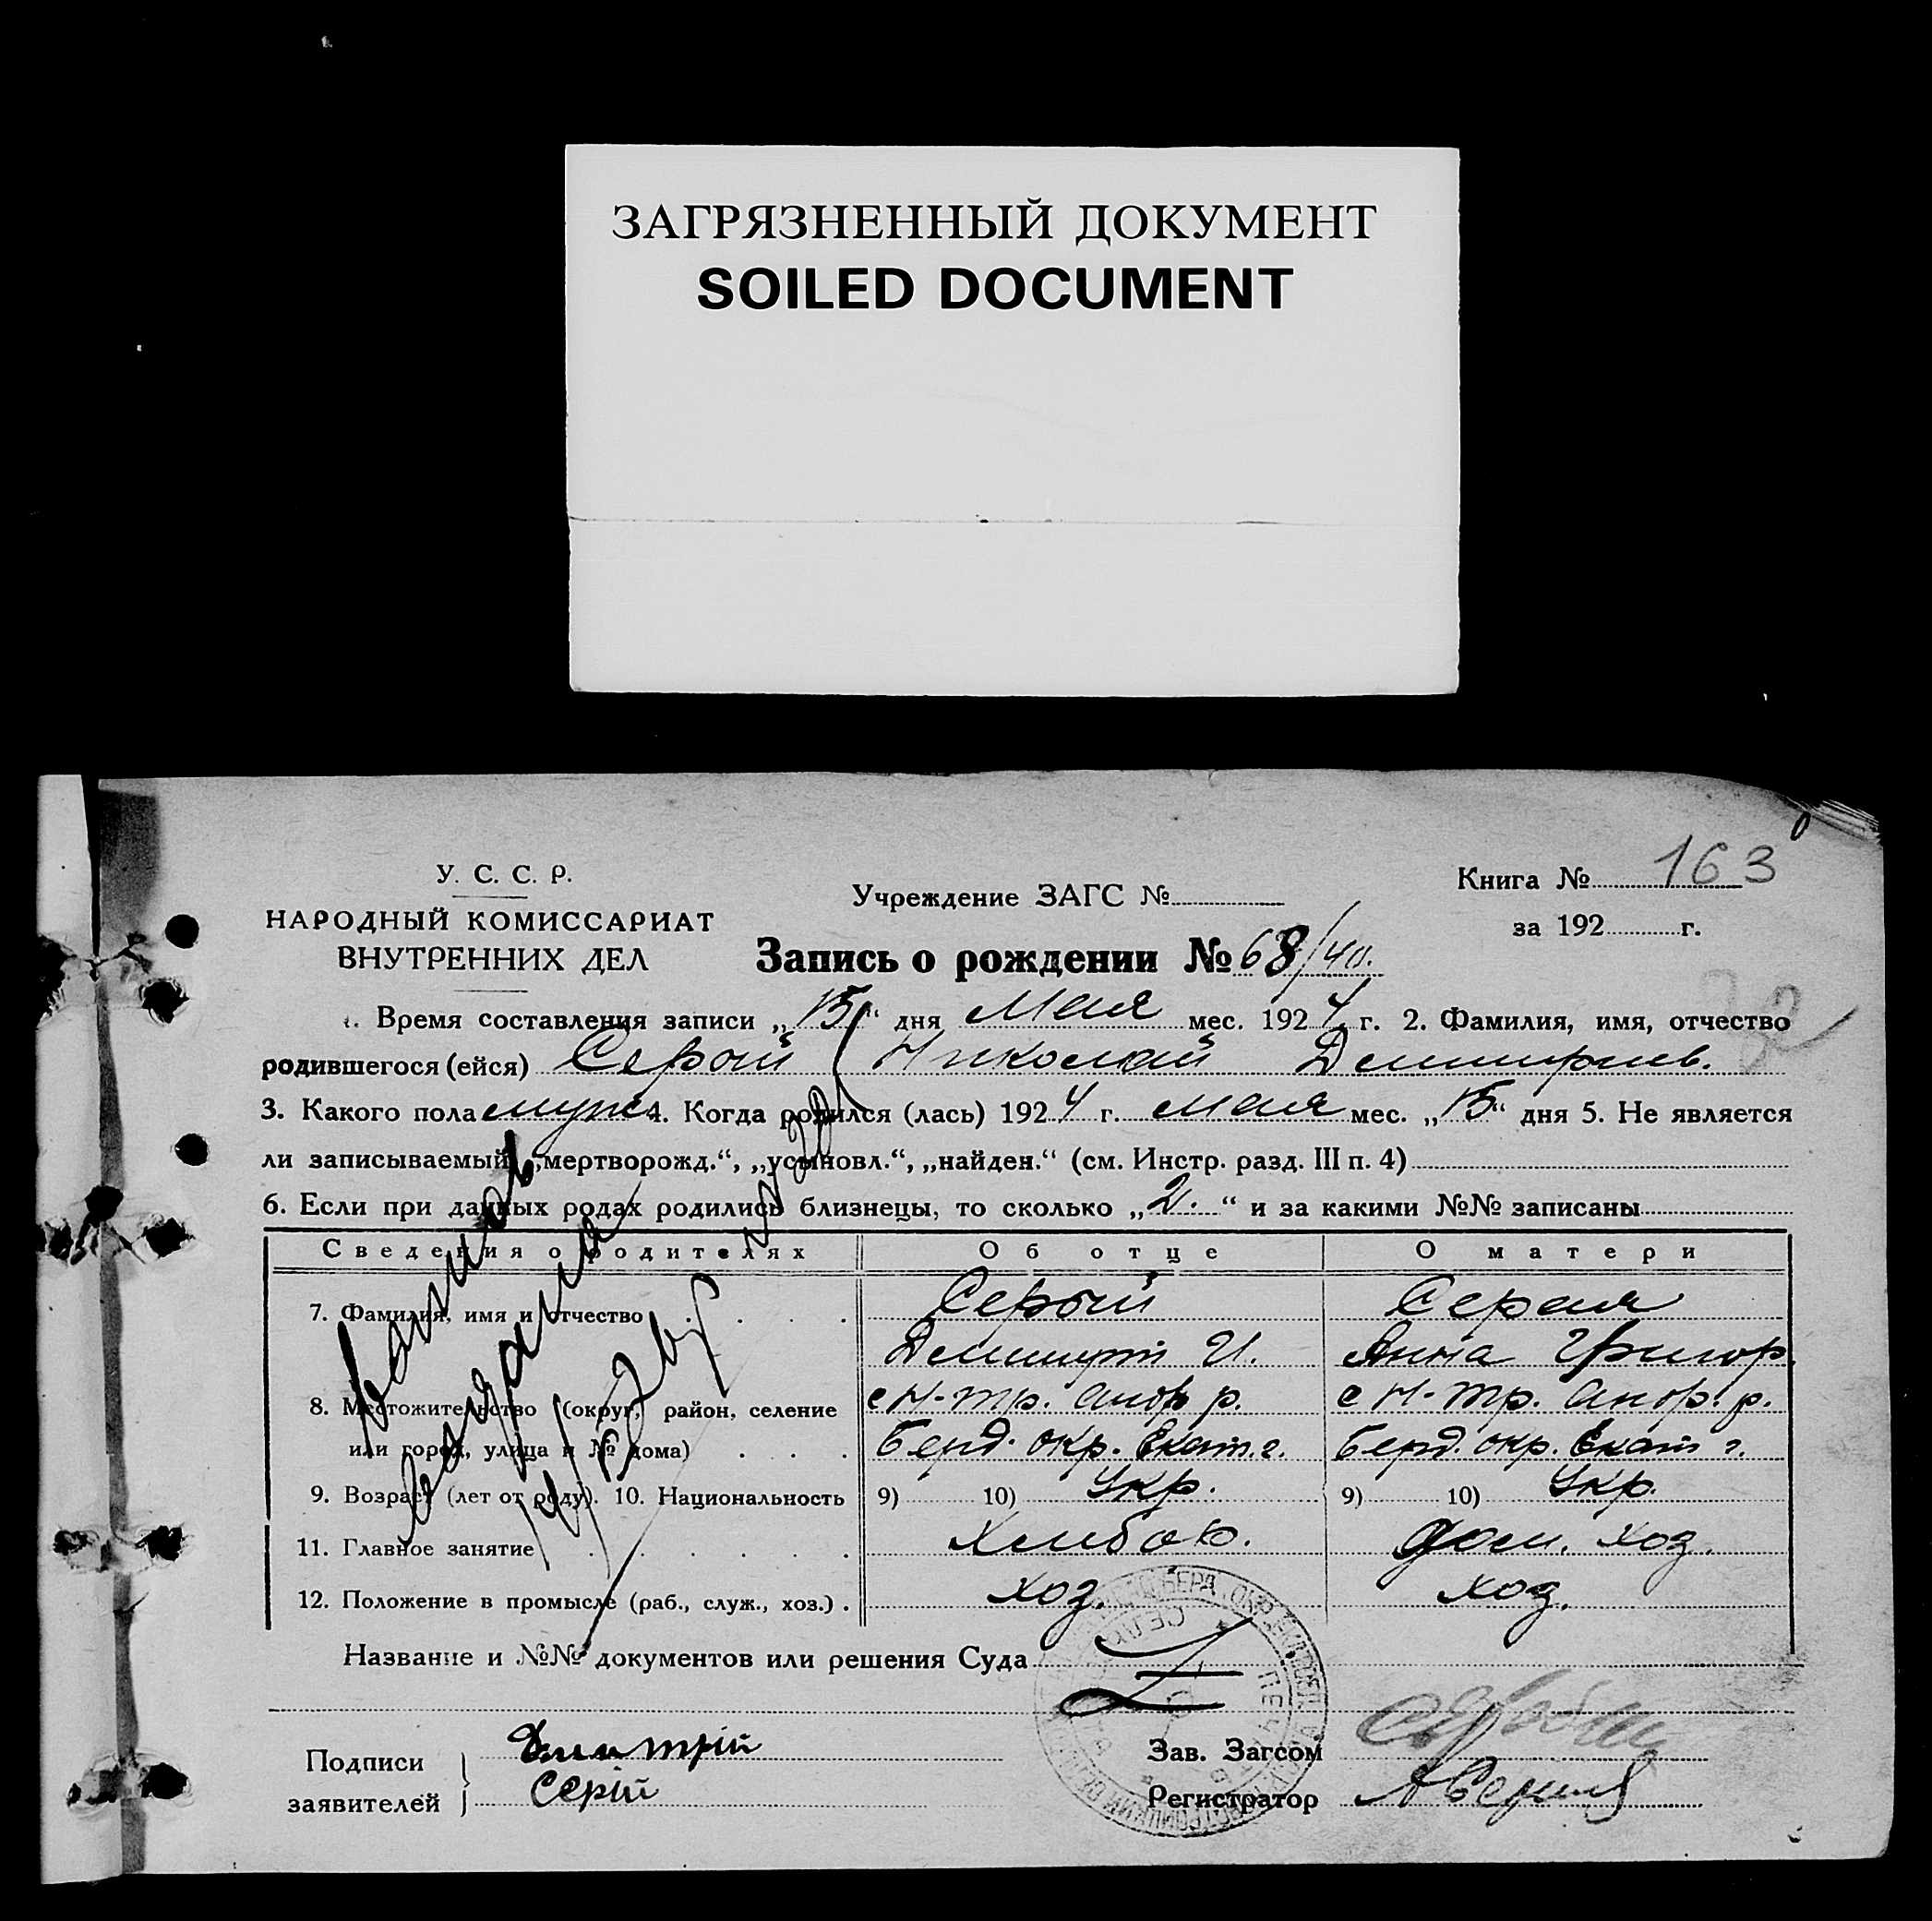 ЗАГРЯЗНЕННЫЙ ДОКУМЕНТ
SOILED DOCUMENT
У. С. С. Р.
НАРОДНЫЙ КОМИССАРИАТ
ВНУТРЕННИХ ДЕЛ
Учреждение ЗАГС №
Книга № 163
за 192 г.
Запись о рождении № 68/40.
1. Время составления записи „15“ дня Мая мес. 1924 г. 2. Фамилия, имя, отчество
родившегося (ейся) Серый Николай Дмитриев.
3. Какого пола муж. 4. Когда родился (лась) 1924 г. мая мес. „15“ дня 5. Не является
ли записываемый „мертворожд.“, „усыновл.“, „найден.“ (см. Инстр. разд. III п. 4)
6. Если при данных родах родились близнецы, то сколько „2.“ и за какими №№ записаны
Сведения о родителях Об отце О матери
7. Фамилия, имя и отчество Серый Серая
Дмитрий И. Анна Григор.
8. Местожительство (округ, район, селение с Н-тр. Андр. р. с Н-тр. Андр. р.
или город, улица и № дома) Берд. окр. Екат. г. Берд. окр. Екат г.
9. Возраст (лет от роду). 10. Национальность 9) 10) Укр. 9) 10) Укр.
11. Главное занятие Хлибоб. Дом. хоз.
12. Положение в промысле (раб., служ., хоз.) хоз. хоз.
Название и №№ документов или решения Суда
Подписи заявителей Дмитрій
Серій
Зав. Загсом
Регистратор